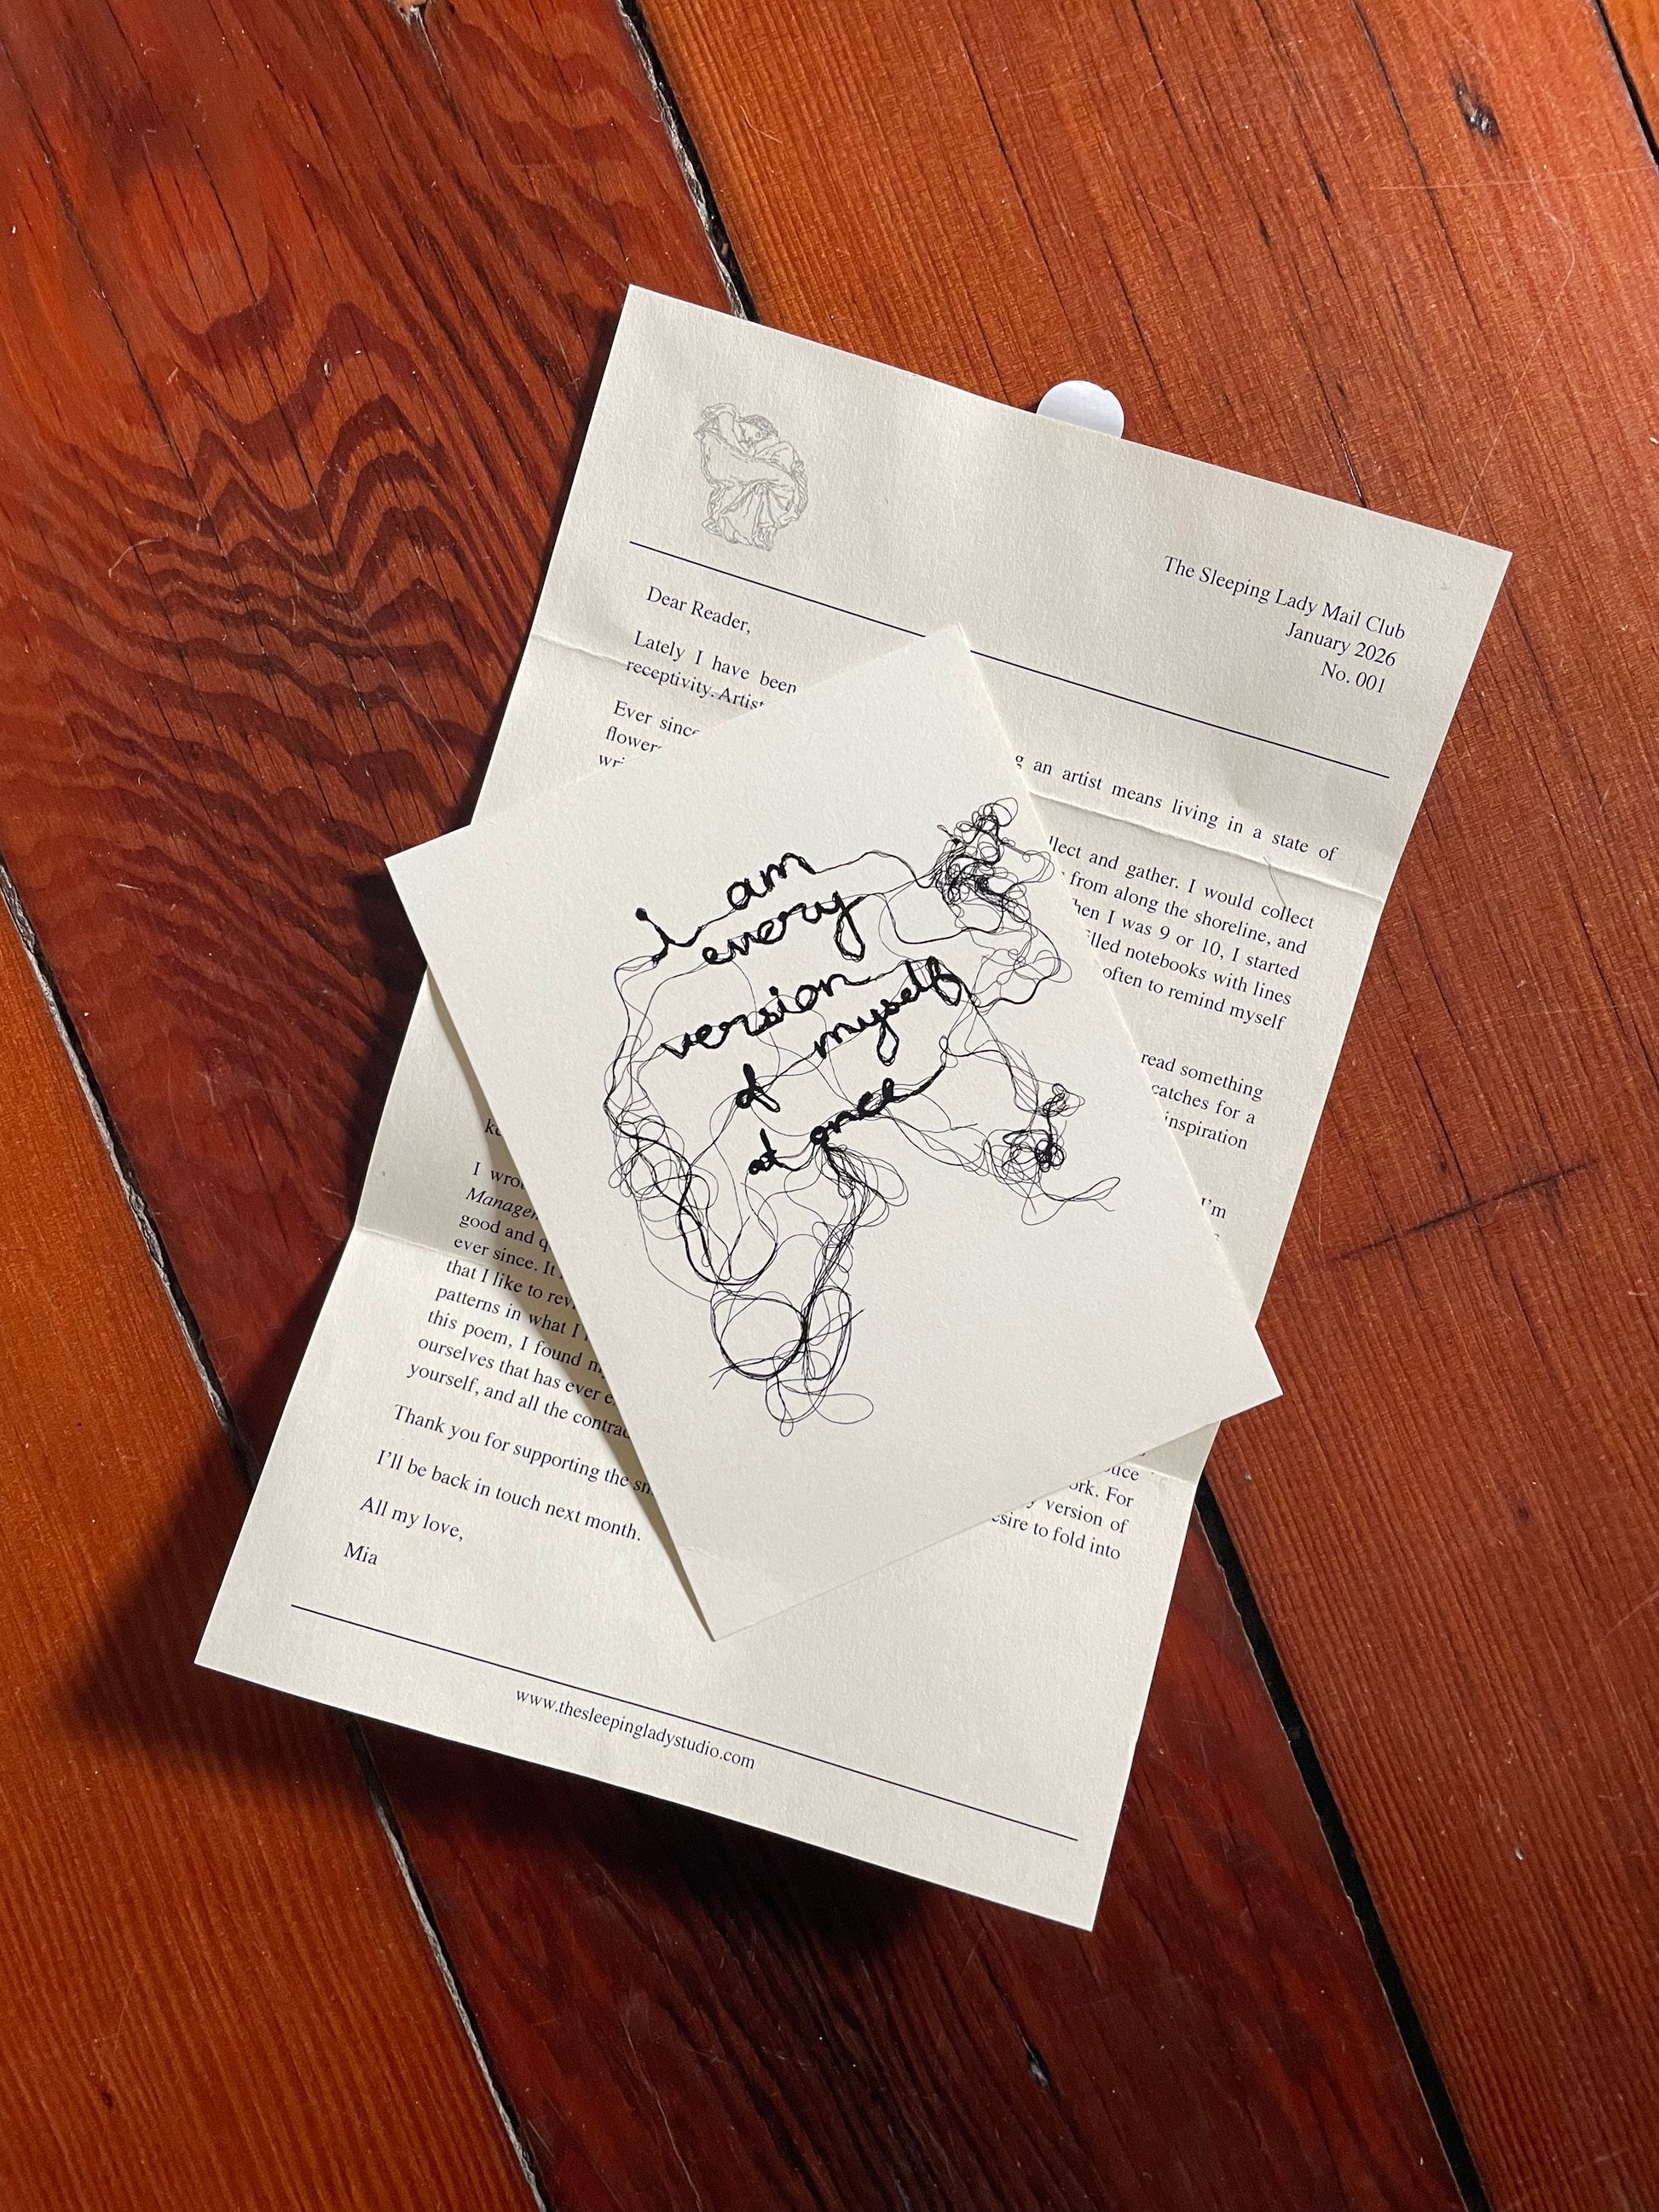 The Sleeping Lady Mail Club
January 2026
No. 001
Dear Reader,
Lately I have been
g an artist means living in a state of
receptivity. Artist
Ever since
llect and gather. I would collect
flower
from along the shoreline, and
wri
hen I was 9 or 10, I started
illed notebooks with lines
often to remind myself
read something
catches for a
inspiration
I'm
I wro
Managem
good and q
ever since. It
that I like to rev
patterns in what I
this poem, I found m
ork. For
ourselves that has ever e
version of
yourself, and all the contrad
esire to fold into
Thank you for supporting the sm
I'll be back in touch next month.
All my love,
Mia
www.thesleepingladystudio.com
i am
every
version
of myself
at once